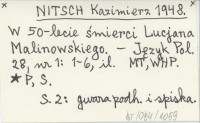 NITSCH Kazimierz 1948.
W 50-lecie śmierci Lucjana
Malinowskiego. – Język Pol.
28, nr 1: 1-6, il. MT, WHP.
* P, S.
S. 2: gwara podh. i spiska.